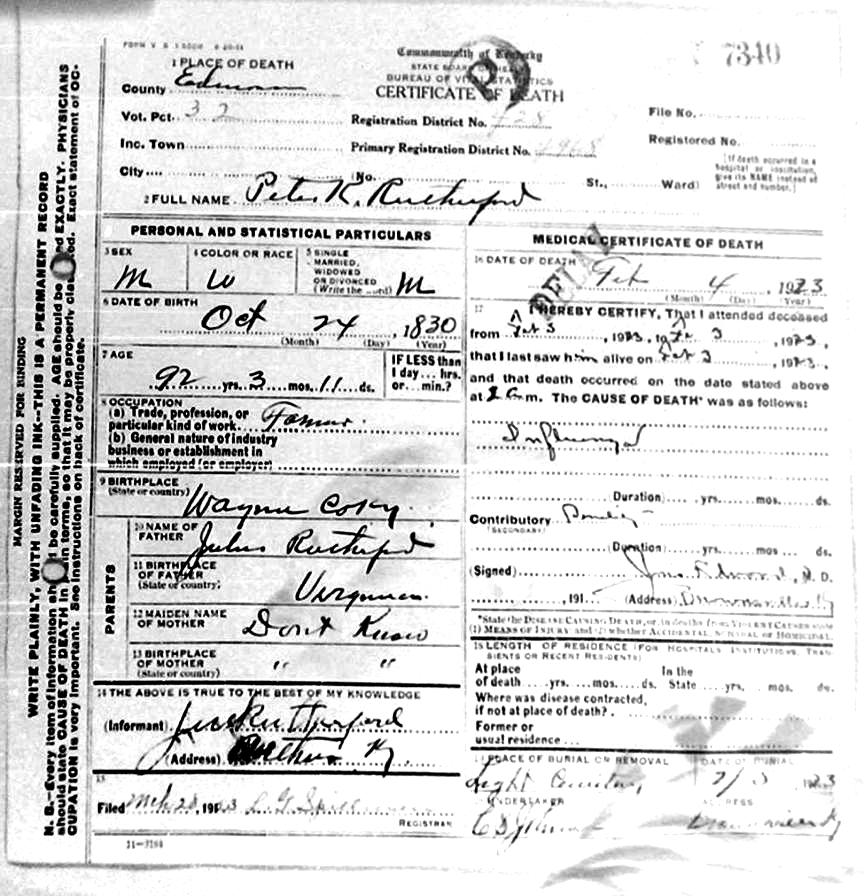 FORM V. S.
Commonwealth of Kentucky
STATE BOARD OF HEALTH
BUREAU OF VITAL STATISTICS
CERTIFICATE OF DEATH
7340
1 PLACE OF DEATH
County
Vot. Pct. 32
Inc. Town
City
No.
St.,
Ward)
Registration District No. 428
Primary Registration District No.
File No.
Registered No.
[If death occurred in a
hospital or institution,
give its NAME instead of
street and number.]
2 FULL NAME Peter K. Rutherford
MARGIN RESERVED FOR BINDING
WRITE PLAINLY, WITH UNFADING INK--THIS IS A PERMANENT RECORD
N. B.--Every item of information should be carefully supplied. AGE should be stated EXACTLY. PHYSICIANS
should state CAUSE OF DEATH in plain terms, so that it may be properly classified. Exact statement of OC-
CUPATION is very important. See instructions on back of certificate.
PERSONAL AND STATISTICAL PARTICULARS
3 SEX
M
4 COLOR OR RACE
W
5 SINGLE
MARRIED,
WIDOWED
OR DIVORCED
(Write the word)
M
6 DATE OF BIRTH
Oct 24 1830
(Month) (Day) (Year)
7 AGE
92 yrs. 3 mos. 11 ds.
IF LESS than
1 day... hrs.
or... min.?
8 OCCUPATION
(a) Trade, profession, or
particular kind of work. Farmer
(b) General nature of industry
business or establishment in
which employed (or employer)
9 BIRTHPLACE
(State or country)
Wayne Co Ky.
PARENTS
10 NAME OF
FATHER
Julus Rutherford
11 BIRTHPLACE
OF FATHER
(State or country)
12 MAIDEN NAME
OF MOTHER
Dont Know
13 BIRTHPLACE
OF MOTHER
(State or country)
" "
14 THE ABOVE IS TRUE TO THE BEST OF MY KNOWLEDGE
(Informant) Rutherford
(Address) Ky
15
Filed Mch 28, 1923
REGISTRAR
11-3184
MEDICAL CERTIFICATE OF DEATH
DELAY
16 DATE OF DEATH
Feb 4 1923
(Month) (Day) (Year)
17
I HEREBY CERTIFY, That I attended deceased
from Feb 3 1923, to Feb 3 1923,
that I last saw him alive on Feb 3 1923,
and that death occurred on the date stated above
at m. The CAUSE OF DEATH was as follows:
Influenza
Duration) yrs. mos. ds.
Contributory
(SECONDARY)
Duration) yrs. mos. ds.
(Signed) M. D.
191 (Address) Brownsville Ky
*State the DISEASE CAUSING DEATH, or, in deaths from VIOLENT CAUSES state
(1) MEANS OF INJURY and (2) whether ACCIDENTAL, SUICIDAL or HOMICIDAL.
18 LENGTH OF RESIDENCE (FOR HOSPITALS, INSTITUTIONS, TRAN-
SIENTS OR RECENT RESIDENTS)
At place
of death yrs. mos. ds.
In the
State yrs. mos. ds.
Where was disease contracted,
if not at place of death?
Former or
usual residence
19 PLACE OF BURIAL OR REMOVAL
DATE OF BURIAL
UNDERTAKER
ADDRESS
Brownsville Ky